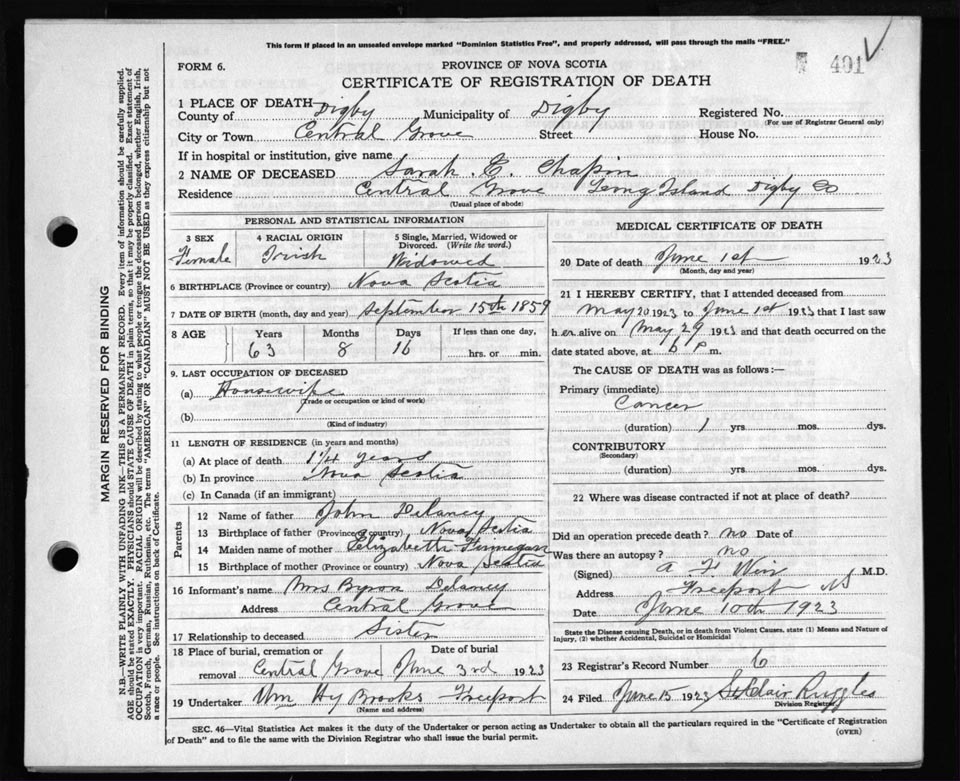 This form if placed in an unsealed envelope marked "Dominion Statistics Free", and properly addressed, will pass through the mails "FREE."
FORM 6.
PROVINCE OF NOVA SCOTIA
CERTIFICATE OF REGISTRATION OF DEATH
401
1 PLACE OF DEATH
County of Digby Municipality of Digby Registered No.
(For use of Registrar General only)
City or Town Central Grove Street House No.
If in hospital or institution, give name
2 NAME OF DECEASED Sarah E. Chapin
Residence Central Grove Long Island Digby Co
(Usual place of abode)
PERSONAL AND STATISTICAL INFORMATION
3 SEX 4 RACIAL ORIGIN 5 Single, Married, Widowed or Divorced. (Write the word.)
Female Irish Widowed
6 BIRTHPLACE (Province or country) Nova Scotia
7 DATE OF BIRTH (month, day and year) September 15th 1859
8 AGE Years Months Days If less than one day,
63 8 16 hrs. or min.
9. LAST OCCUPATION OF DECEASED
(a) Housewife
(Trade or occupation or kind of work)
(b)
(Kind of industry)
11 LENGTH OF RESIDENCE (in years and months)
(a) At place of death years
(b) In province Nova Scotia
(c) In Canada (if an immigrant)
Parents
12 Name of father John Delaney
13 Birthplace of father (Province or country) Nova Scotia
14 Maiden name of mother Elizabeth Finnegan
15 Birthplace of mother (Province or country) Nova Scotia
16 Informant's name Mrs Byron Delaney
Address Central Grove
17 Relationship to deceased Sister
18 Place of burial, cremation or removal Date of burial
Central Grove June 3rd 1923
19 Undertaker Wm Hy Brooks Freeport
(Name and address)
MEDICAL CERTIFICATE OF DEATH
20 Date of death June 1st 1923
(Month, day and year)
21 I HEREBY CERTIFY, that I attended deceased from
May 20 1923 to June 1st 1923 that I last saw
her alive on May 29 1923 and that death occurred on the
date stated above, at 6 P m.
The CAUSE OF DEATH was as follows:—
Primary (immediate)
Cancer
(duration) 1 yrs. mos. dys.
CONTRIBUTORY
(Secondary)
(duration) yrs. mos. dys.
22 Where was disease contracted if not at place of death?
Did an operation precede death? no Date of
Was there an autopsy? no
(Signed) A F Weir M.D.
Address Freeport NS
Date June 10th 1923
State the Disease causing Death, or in death from Violent Causes, state (1) Means and Nature of
Injury, (2) whether Accidental, Suicidal or Homicidal
23 Registrar's Record Number 6
24 Filed June 15 1923 StClair Ruggles
Division Registrar
SEC. 46—Vital Statistics Act makes it the duty of the Undertaker or person acting as Undertaker to obtain all the particulars required in the "Certificate of Registration
of Death" and to file the same with the Division Registrar who shall issue the burial permit.
(OVER)
MARGIN RESERVED FOR BINDING
N.B.—WRITE PLAINLY WITH UNFADING INK—THIS IS A PERMANENT RECORD. Every item of information should be carefully supplied.
AGE should be stated EXACTLY. PHYSICIANS should STATE CAUSE OF DEATH in plain terms, so that it may be properly classified. Exact statement of
OCCUPATION is very important. RACIAL ORIGIN will be described by stating to what people or tongue the deceased person belonged, whether English, Irish,
Scotch, French, German, Russian, Ruthenian, etc. The terms "AMERICAN" OR "CANADIAN" MUST NOT BE USED as they express citizenship but not
a race or people. See instructions on back of Certificate.